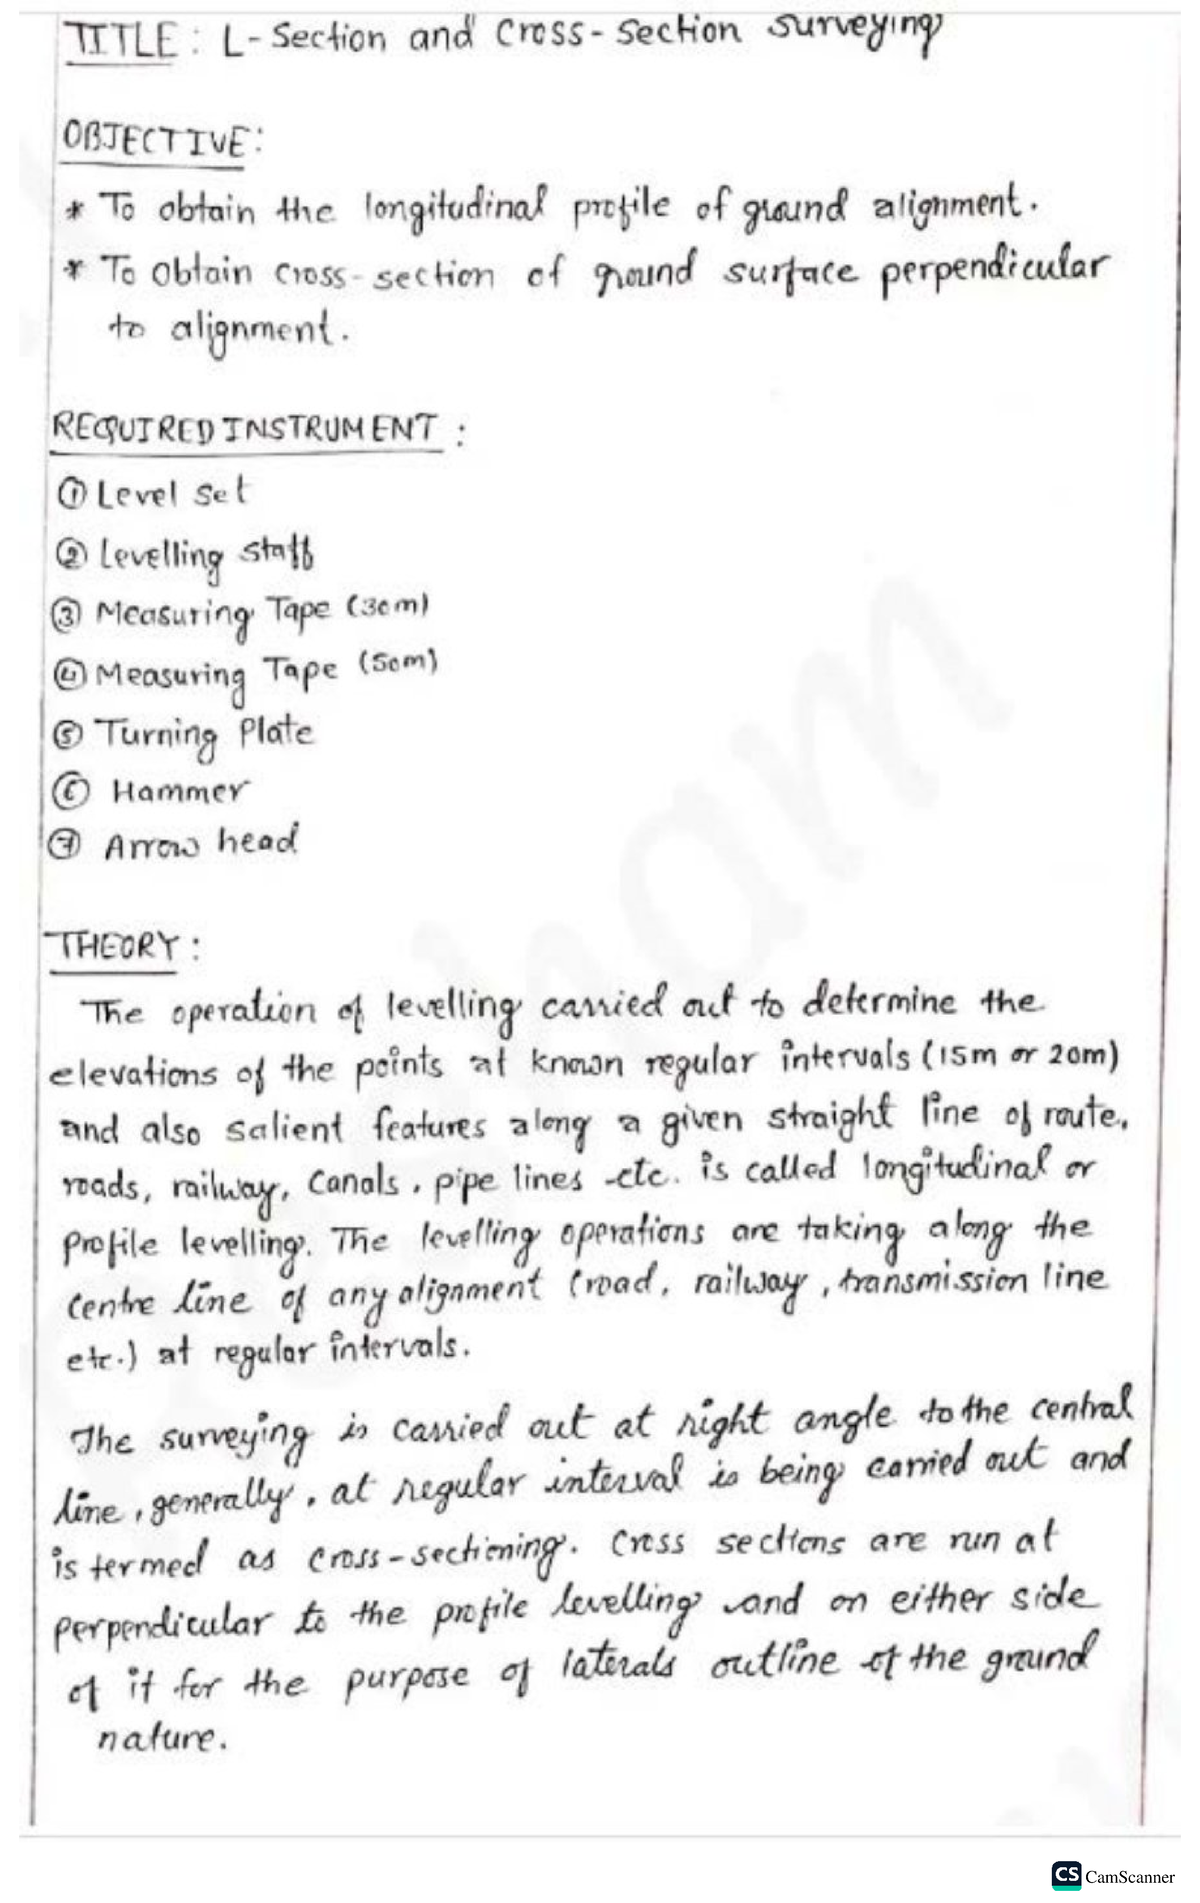 TITLE: L-Section and Cross-Section surveying
OBJECTIVE:
* To obtain the longitudinal profile of ground alignment.
* To obtain cross-section of ground surface perpendicular
to alignment.
REQUIRED INSTRUMENT :
① Level set
② Levelling staff
③ Measuring Tape (30m)
④ Measuring Tape (50m)
⑤ Turning Plate
⑥ Hammer
⑦ Arrow head
THEORY:
The operation of levelling carried out to determine the
elevations of the points at known regular intervals (15m or 20m)
and also salient features along a given straight line of route,
roads, railway, Canals, pipe lines etc. is called longitudinal or
profile levelling. The levelling operations are taking along the
centre line of any alignment (road, railway, transmission line
etc.) at regular intervals.
The surveying is carried out at right angle to the central
line, generally, at regular interval is being carried out and
is termed as cross-sectioning. Cross sections are run at
perpendicular to the profile levelling and on either side
of it for the purpose of laterals outline of the ground
nature.
CS CamScanner